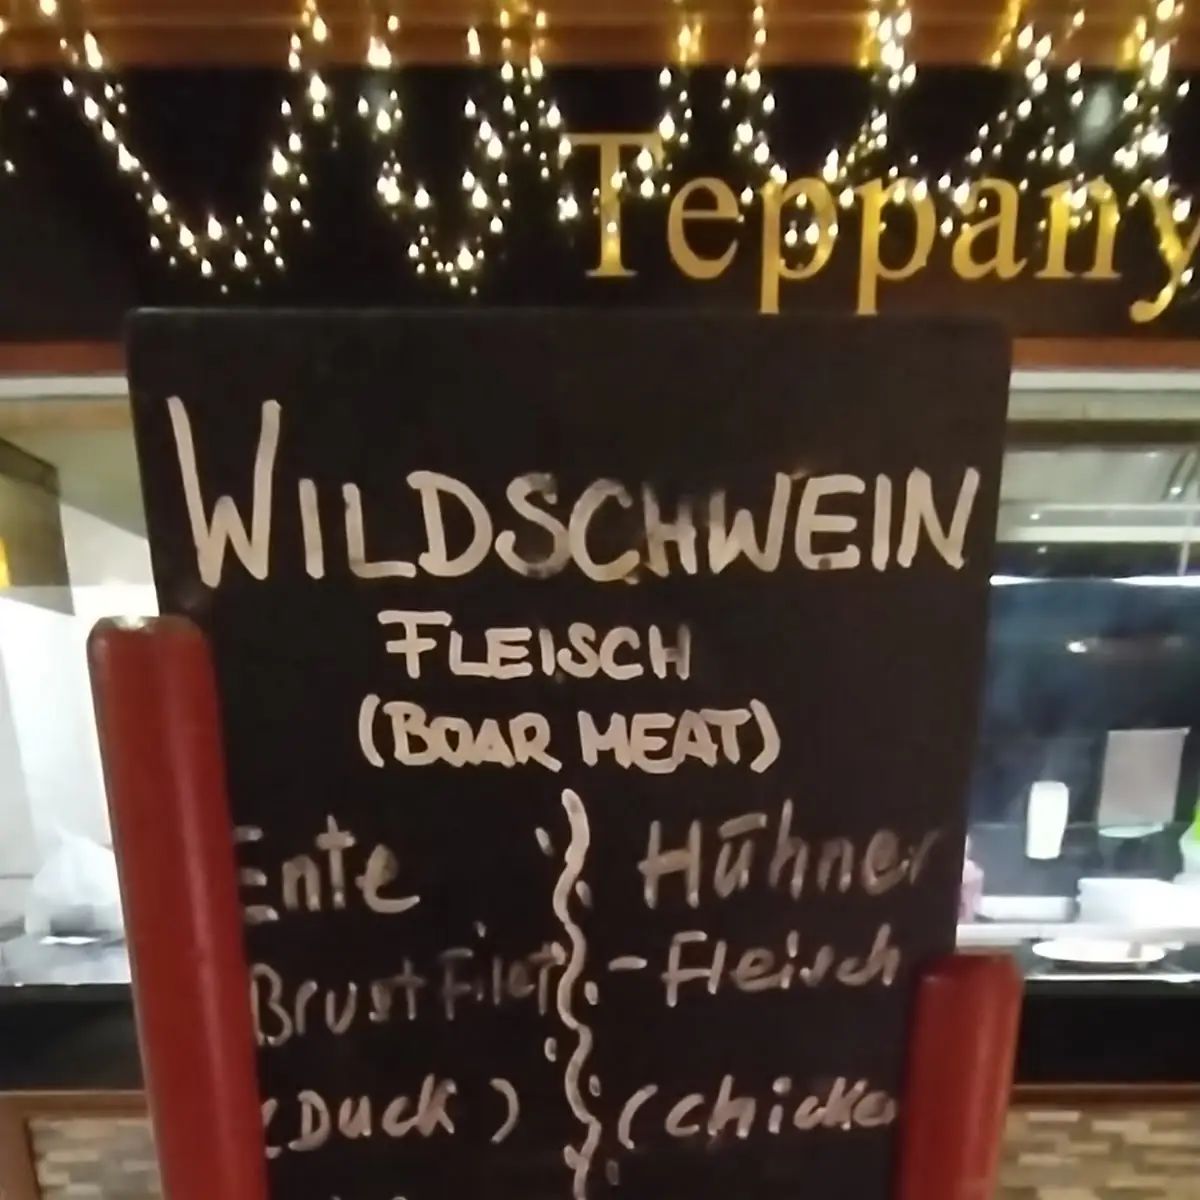 Teppany
WILDSCHWEIN
FLEISCH
(BOAR MEAT)
Ente
Brust Filet
(Duck)
Hühner
-Fleisch
(chicke